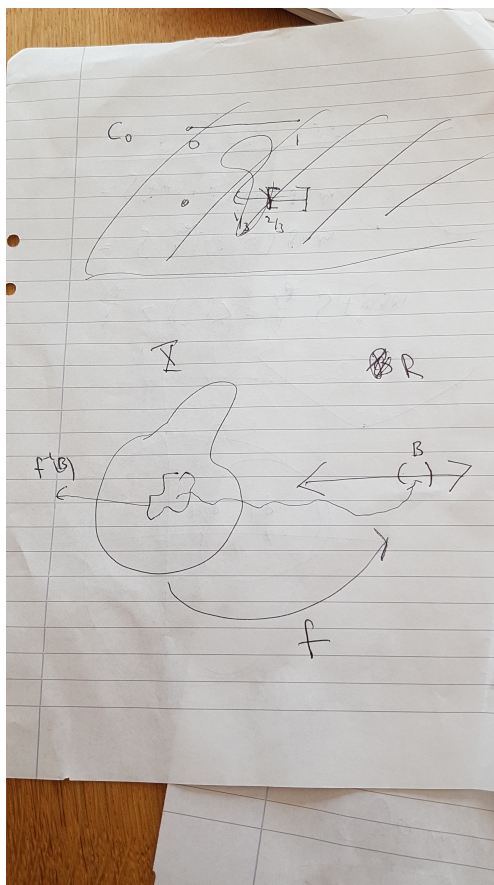 C₀
0 1
0 1/3 2/3
X R
B
f⁻¹(B)
f